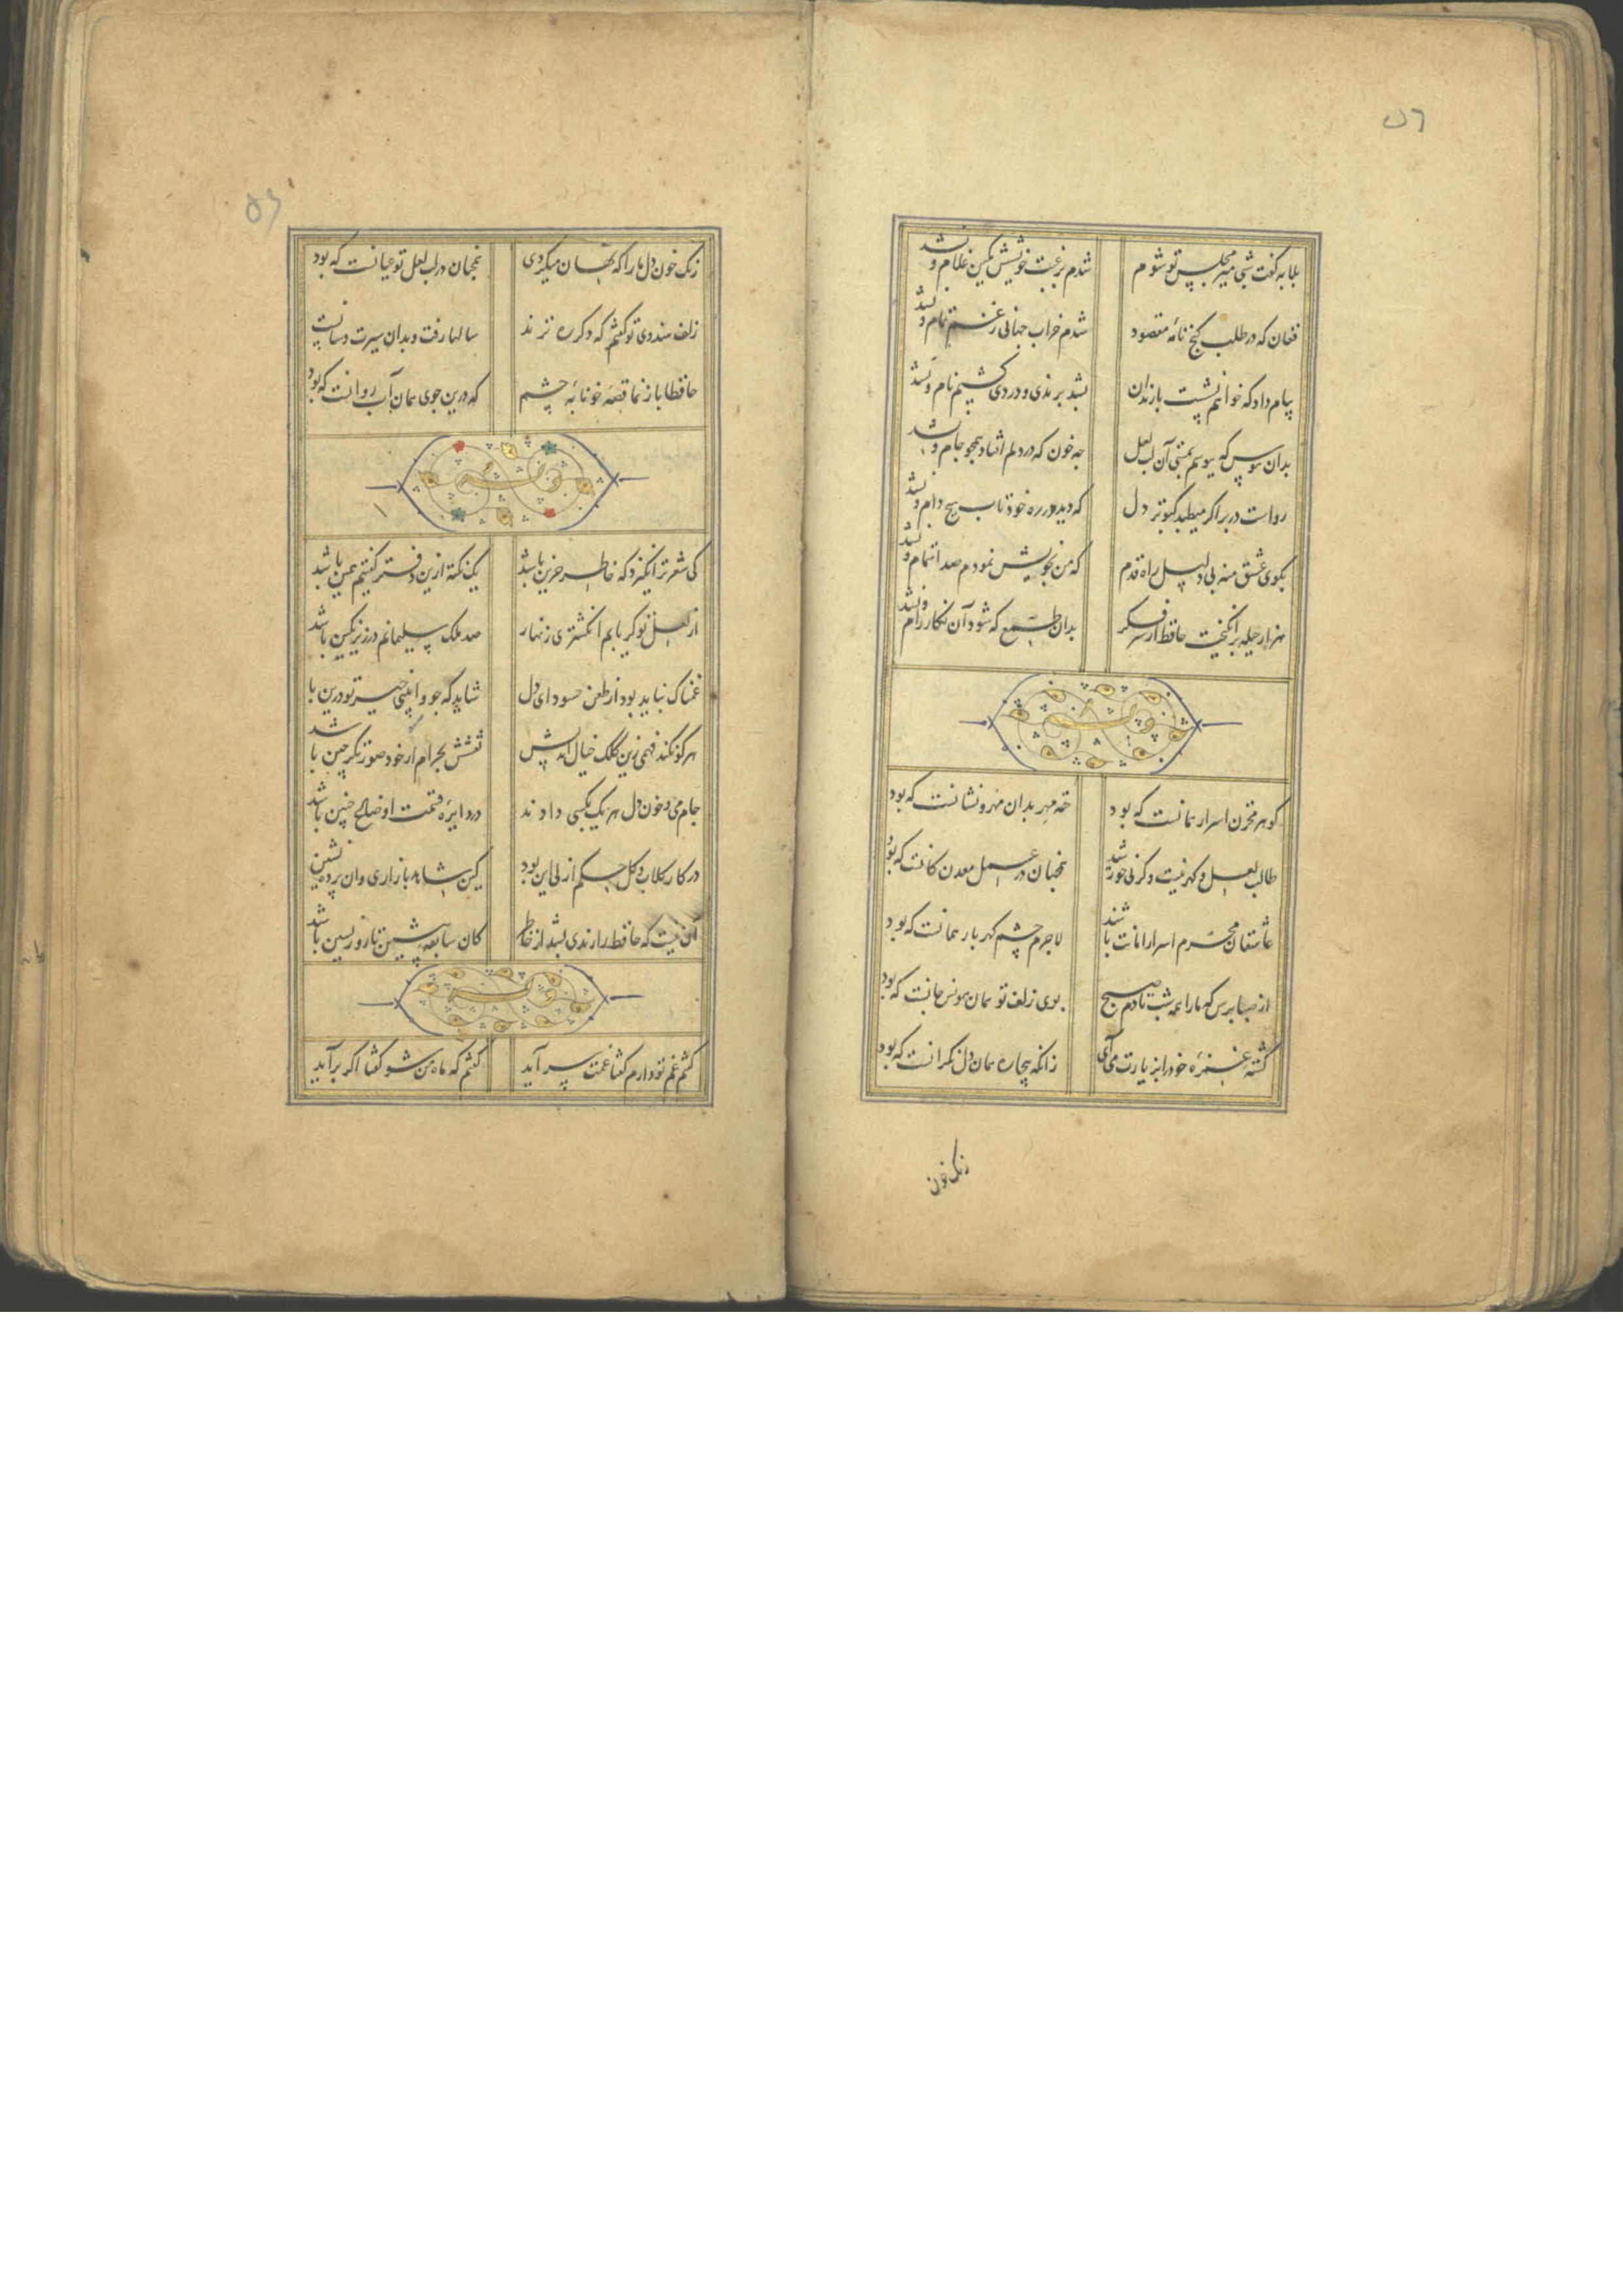 ۵۲
بلابه گفت شبی میر مجلس تو شوم شدم برغبت خویشش کمین غلام و نشد
فغان که در طلب گنج نامهٔ مقصود شدم خراب جهانی ز غم تمام و نشد
پیام داد که خواهم نشست با رندان بشد برندی و دردی کشیم نام و نشد
بدان هوس که ببوسم بمستی آن لب لعل چه خون که در دلم افتاد همچو جام و نشد
رواست در بر اگر میطپد کبوتر دل که دید در ره خود تاب هیچ دام و نشد
بکوی عشق منه بی دلیل راه قدم که من بخویش نمودم صد اهتمام و نشد
هزار حیله برانگیخت حافظ از سر فکر بدان طمع که شود آن نگار رام و نشد
گوهر مخزن اسرار همانست که بود حقه مهر بدان مهر و نشانست که بود
طالب لعل و گهر نیست وگرنی خورشید همچنان در عمل معدن کانست که بود
عاشقان محرم اسرار امانت باشند لاجرم چشم گهربار همانست که بود
از صبا پرس که ما را همه شب تا دم صبح بوی زلف تو همان مونس جانست که بود
کشته غمزهٔ خود را بزیارت می آی زانکه بیچاره همان دل نگرانست که بود
زنگ خون
۵۳
زنگ خون دل ما را که نهان میکردی همچنان در لب لعل تو عیانست که بود
زلف هندوی تو گفتم که دگر ره نزند سالها رفت و بدان سیرت و سانست
حافظا باز نما قصهٔ خونابه چشم که درین جوی همان آب روانست که بود
کی شعر تر انگیزد که خاطر حزین باشد یک نکته ازین دفتر گفتیم همین باشد
از لعل تو گر یابم انگشتری زنهار صد ملک سلیمانم در زیر نگین باشد
غمناک نباید بود از طعن حسود ای دل شاید که چو وابینی خیر تو درین باشد
هر کو نکند فهمی زین کلک خیال اندیش نقشش بحرام ار خود صورتگر چین باشد
جام می و خون دل هر یک بکسی دادند در دایرهٔ قسمت اوضاع چنین باشد
در کار گلاب و گل حکم ازلی این بود کین شاهد بازاری وان پرده نشین
آن نیست که حافظ را رندی بشد از خاطر کان سابقه پیشین تا روز پسین باشد
گفتم غم تو دارم گفتا غمت سر آید گفتم که ماه من شو گفتا اگر برآید